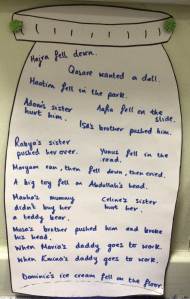 Hajra fell down.
Qasare wanted a doll.
Hastina fell in the park.
Adam's sister hurt him.
Aafia fell on the slide.
Isa's brother pushed him.
Rabya's sister pushed her over.
Yunus fell in the road.
Maryam ran, then fell down, then cried.
A big toy fell on Abdullah's head.
Marha's mummy didn't buy her a teddy bear.
Celine's sister hurt her.
Musa's brother pushed him and broke his head.
When Mario's daddy goes to work.
When daddy goes to work.
Dominic's ice cream fell on the floor.